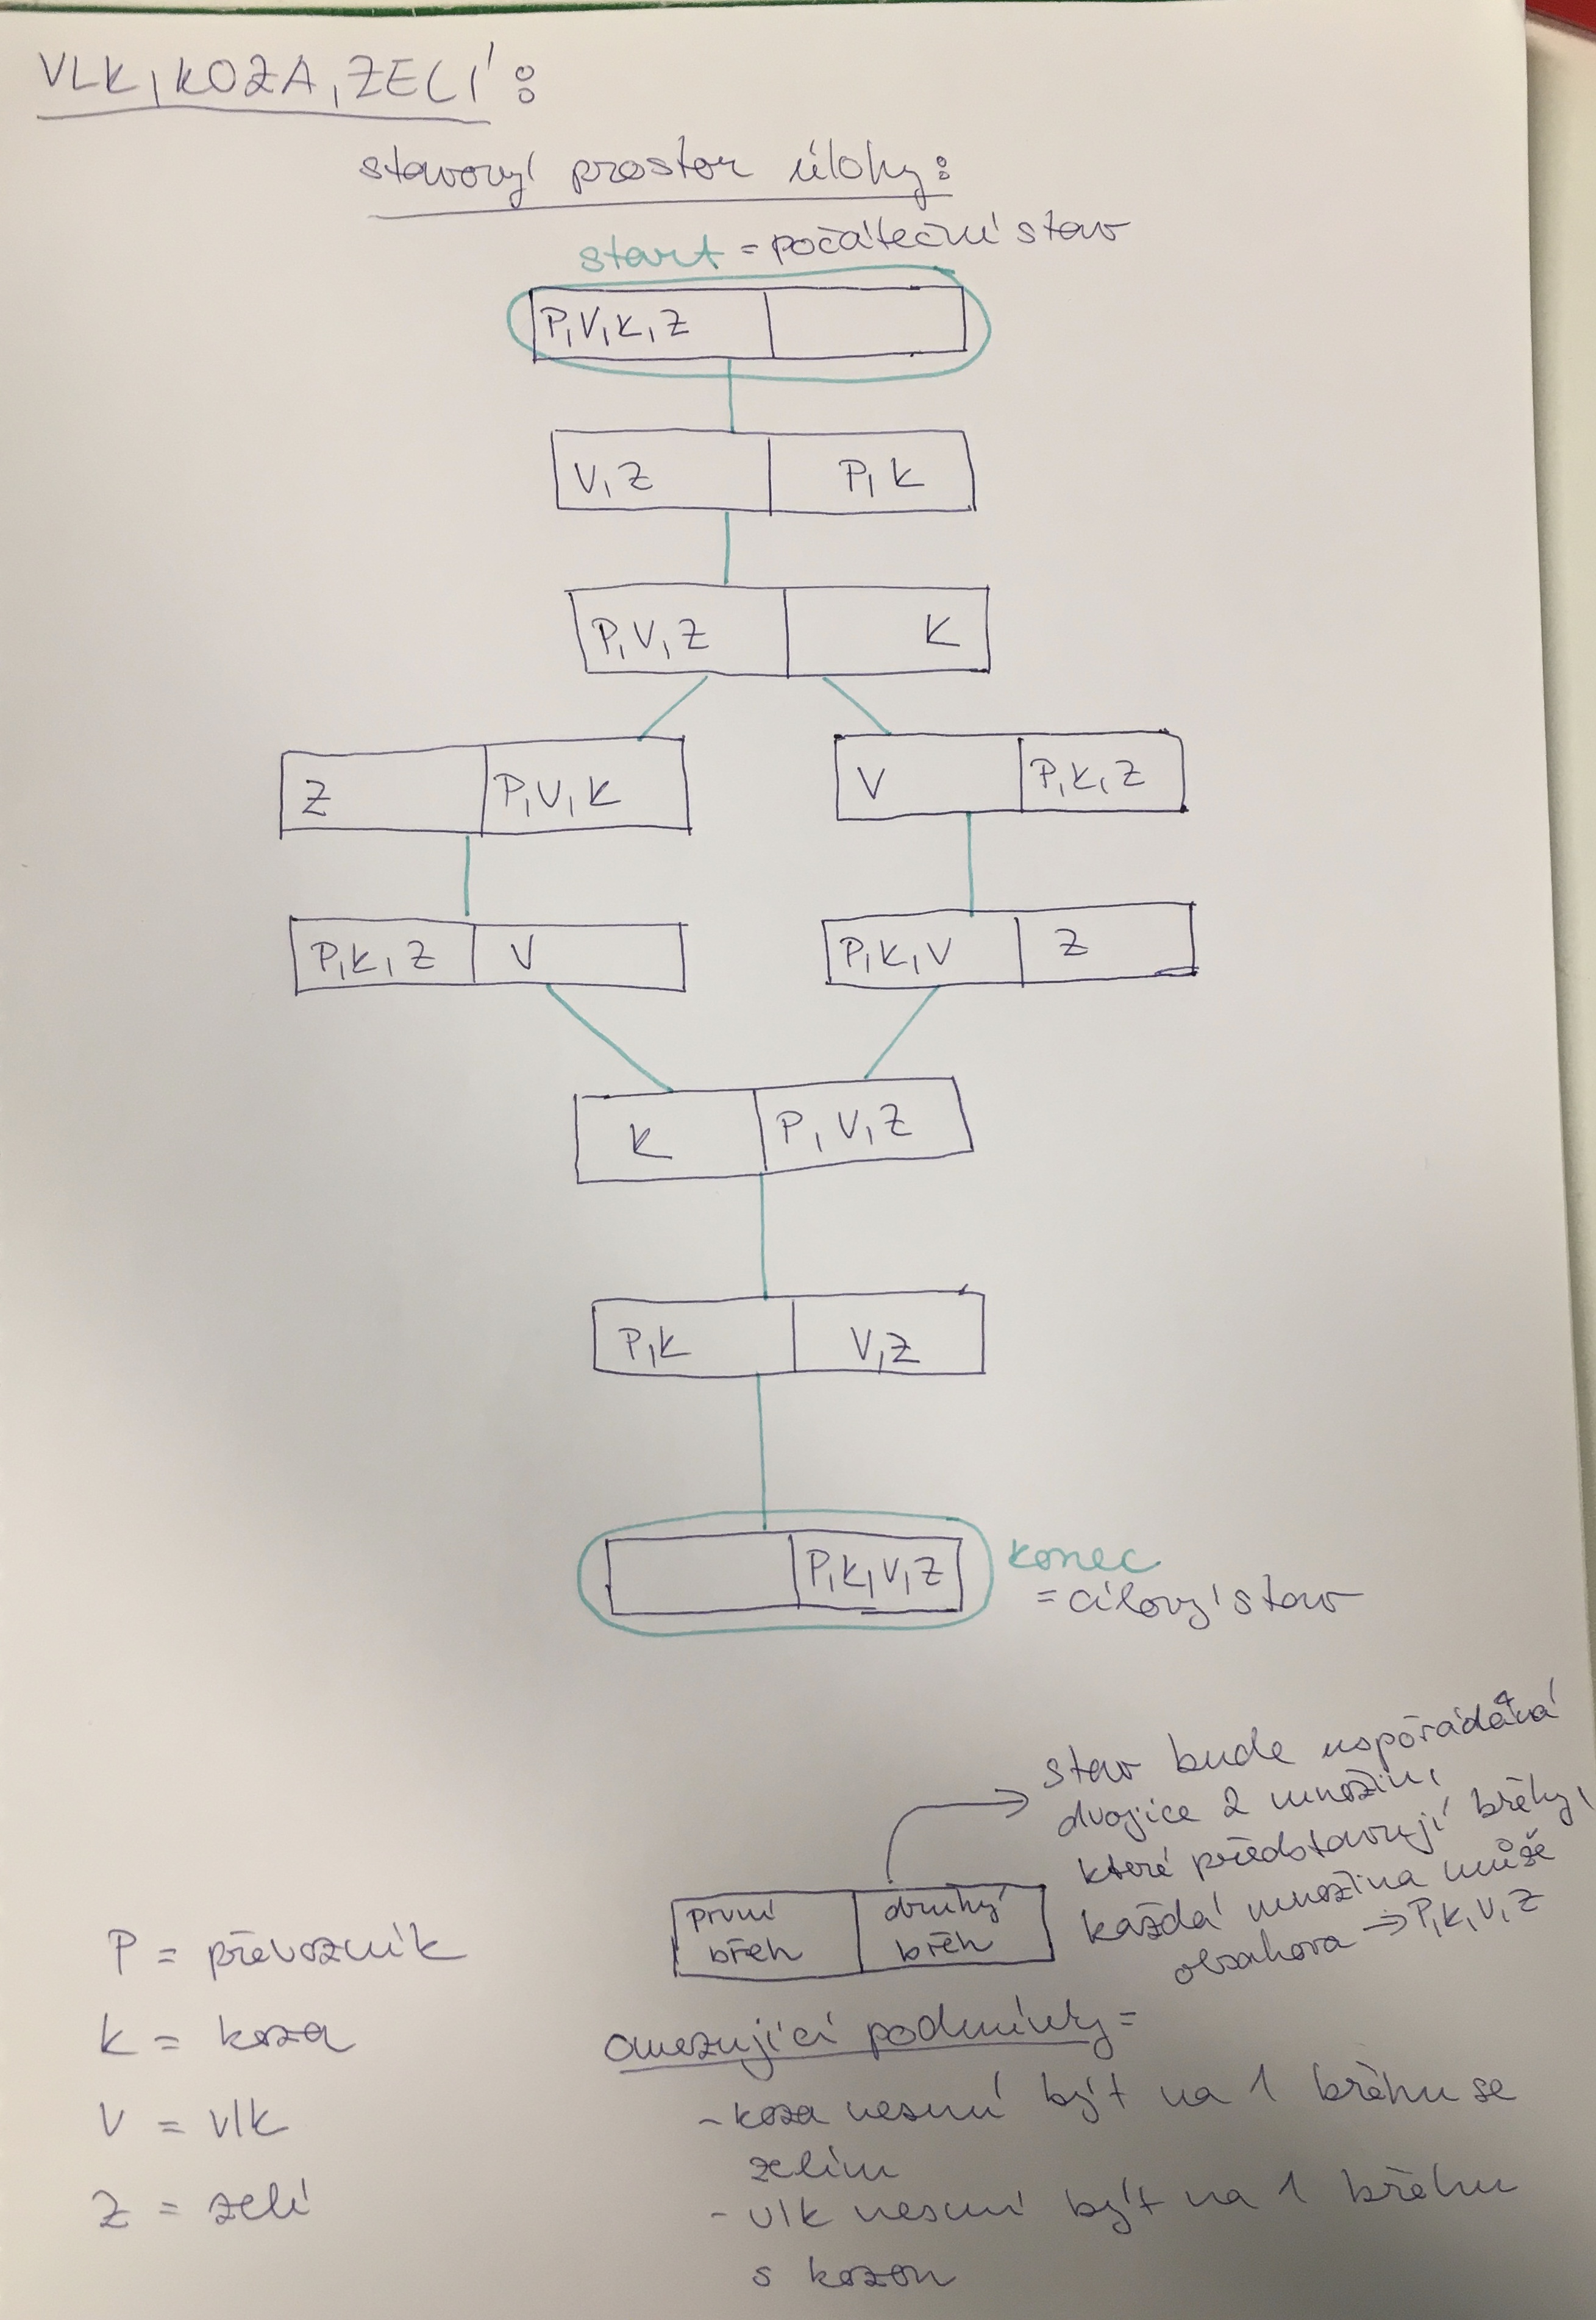 VLK, KOZA, ZELÍ:
stavový prostor úlohy:
start = počáteční stav
P, V, K, Z
V, Z P, K
P, V, Z K
Z P, V, K V P, K, Z
P, K, Z V P, K, V Z
K P, V, Z
P, K V, Z
P, K, V, Z konec
= cílový stav
stav bude uspořádaná
dvojice 2 množin,
které představují břehy,
každá množina může
obsahova → P, K, V, Z
první břeh druhý břeh
P = převozník
K = koza
V = vlk
Z = zelí
omezující podmínky =
- koza nesmí být na 1 břehu se
zelím
- vlk nesmí být na 1 břehu
s kozou